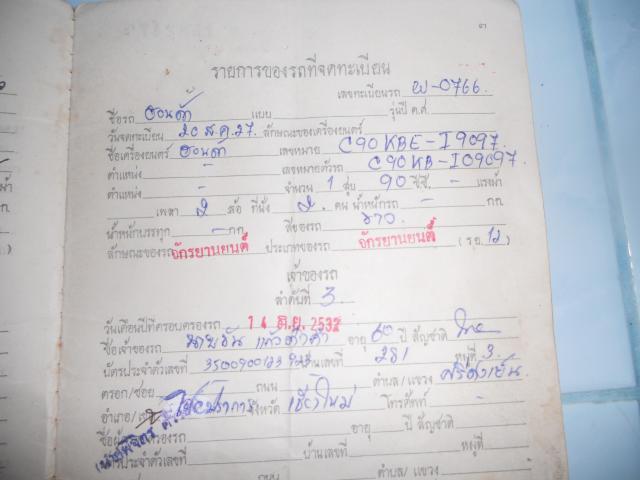 ๓
รายการของรถที่จดทะเบียน
เลขทะเบียนรถ พ-0766
ชื่อรถ ฮอนด้า แบบ รุ่นปี ค.ศ.
วันจดทะเบียน 20 ส.ค. 27. ลักษณะของเครื่องยนตร์
ชื่อเครื่องยนตร์ ฮอนด้า เลขหมาย C90KBE-I9097
ตำแหน่ง - เลขหมายตัวรถ C90KB-I09097
ตำแหน่ง - จำนวน 1 สูบ 90 ซี.ซี. - แรงม้า
เพลา 2 ล้อ ที่นั่ง 2. คน น้ำหนักรถ - กก.
น้ำหนักบรรทุก - กก. สีของรถ ขาว
ลักษณะของรถ จักรยานยนต์ ประเภทของรถ จักรยานยนต์ (รย. 12)
เจ้าของรถ
ลำดับที่ 3
วันเดือนปีที่ครอบครองรถ 14 มิ.ย. 2532
ชื่อเจ้าของรถ อายุ 60 ปี สัญชาติ ไทย
บัตรประจำตัวเลขที่ บ้านเลขที่ 281 หมู่ที่ 3.
ตรอก/ซอย ถนน ตำบล/แขวง
อำเภอ/ จังหวัด เชียงใหม่ โทรศัพท์ -
อายุ ปี สัญชาติ
บัตรประจำตัวเลขที่ บ้านเลขที่ หมู่ที่
ถนน ตำบล/แขวง